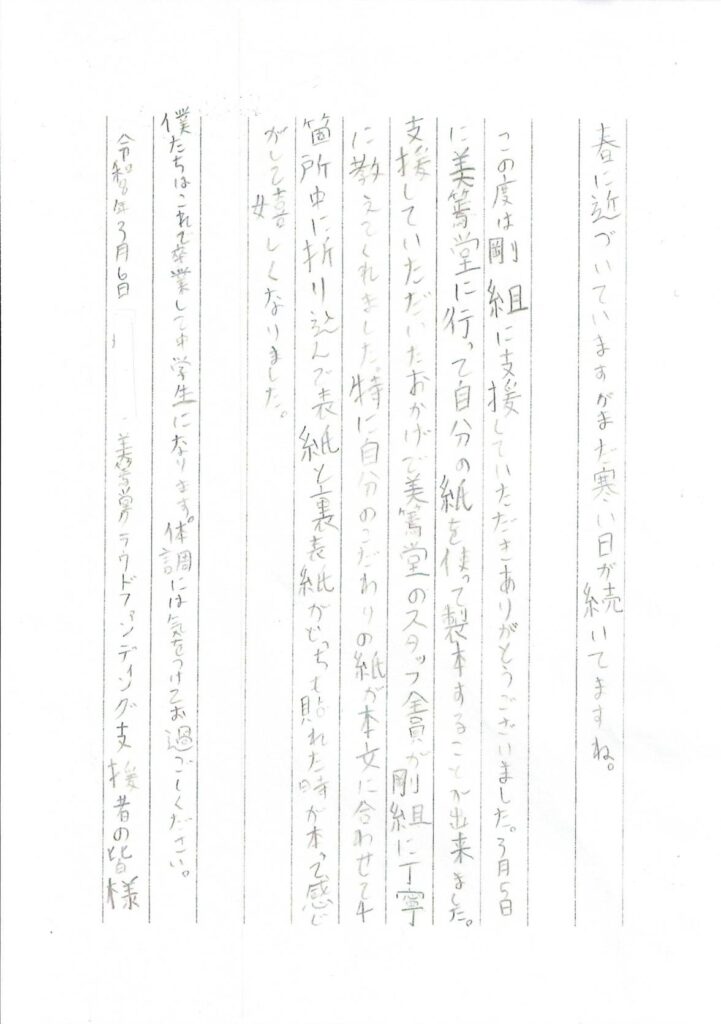 春に近づいていますがまだ寒い日が続いてますね。
この度は剛組に支援していただきありがとうございました。3月5日
に美篶堂に行って自分の紙を使って製本することが出来ました。
支援していただいたおかげで美篶堂のスタッフ全員が剛組に丁寧
に教えてくれました。特に自分のこだわりの紙が本文に合わせて4
箇所中に折り込んで表紙と裏表紙がどっちも貼れた時が本って感じ
がして嬉しくなりました。
僕たちはこれで卒業して中学生になります。体調には気をつけてお過ごしください。
令和8年3月6日
美篶堂クラウドファンディング支援者の皆様